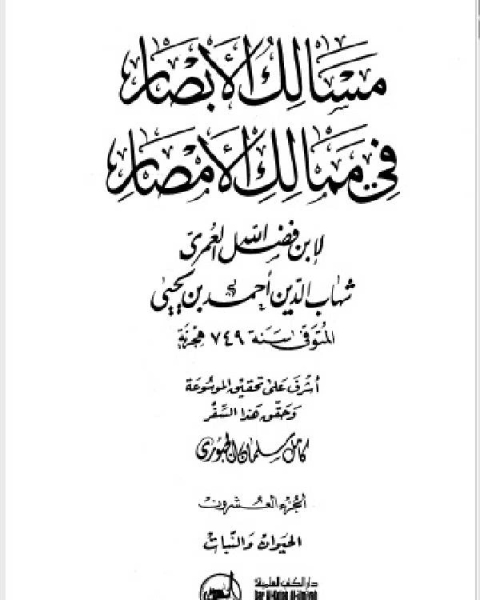 مَسَالِكُ الأَبْصَارِ
فِي مَمَالِكِ الأَمْصَارِ
لابن فضل الله العمري
شهاب الدين أحمد بن يحيى
المتوفى سنة ٧٤٩ هجرية
أشرف على تحقيق الموسوعة
وحقق هذا السفر
كامل سلمان الجبوري
الجزء العشرون
الحيوان والنبات
دار الكتب العلمية
Dar Al-Kotob Al-ilmiyah